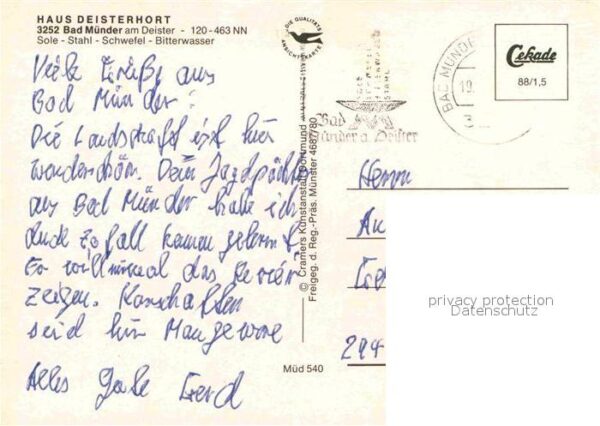 HAUS DEISTERHORT
3252 Bad Münder am Deister - 120-463 NN
Sole - Stahl - Schwefel - Bitterwasser
Viele Grüße aus
Bad Münder!
Die Landschaft ist hier
wunderschön. Dein Jagdpächter
aus Bad Münder habe ich
duch Zofall kennen gelernt
Er will mir mal das Revier
zeigen.
seid hir Mangelware
Alles Gute Gerd
DIE QUALITÄTS
ANSICHTSKARTE
© Cramers Kunstanstalt Dortmund
Freigeg. d. Reg.-Präs. Münster 4687/80
Müd 540
BAD MÜNDER
19.
3
Bad
Münder a. Deister
Cekade
88/1,5
Herrn
privacy protection
Datenschutz